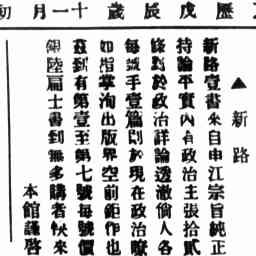 歷戊辰歲十一月初
▲新路
新路壹書來自申江宗旨純正
持論平實內有政治主張拾貳
條對於政治詳論透澈倘人各
每號手壹篇則於現在政治瞭
如指掌洵出版界空前鉅作也
茲到有第壹至第七號每號價
銀陸扁士書到無多購者快來
本館謹啓